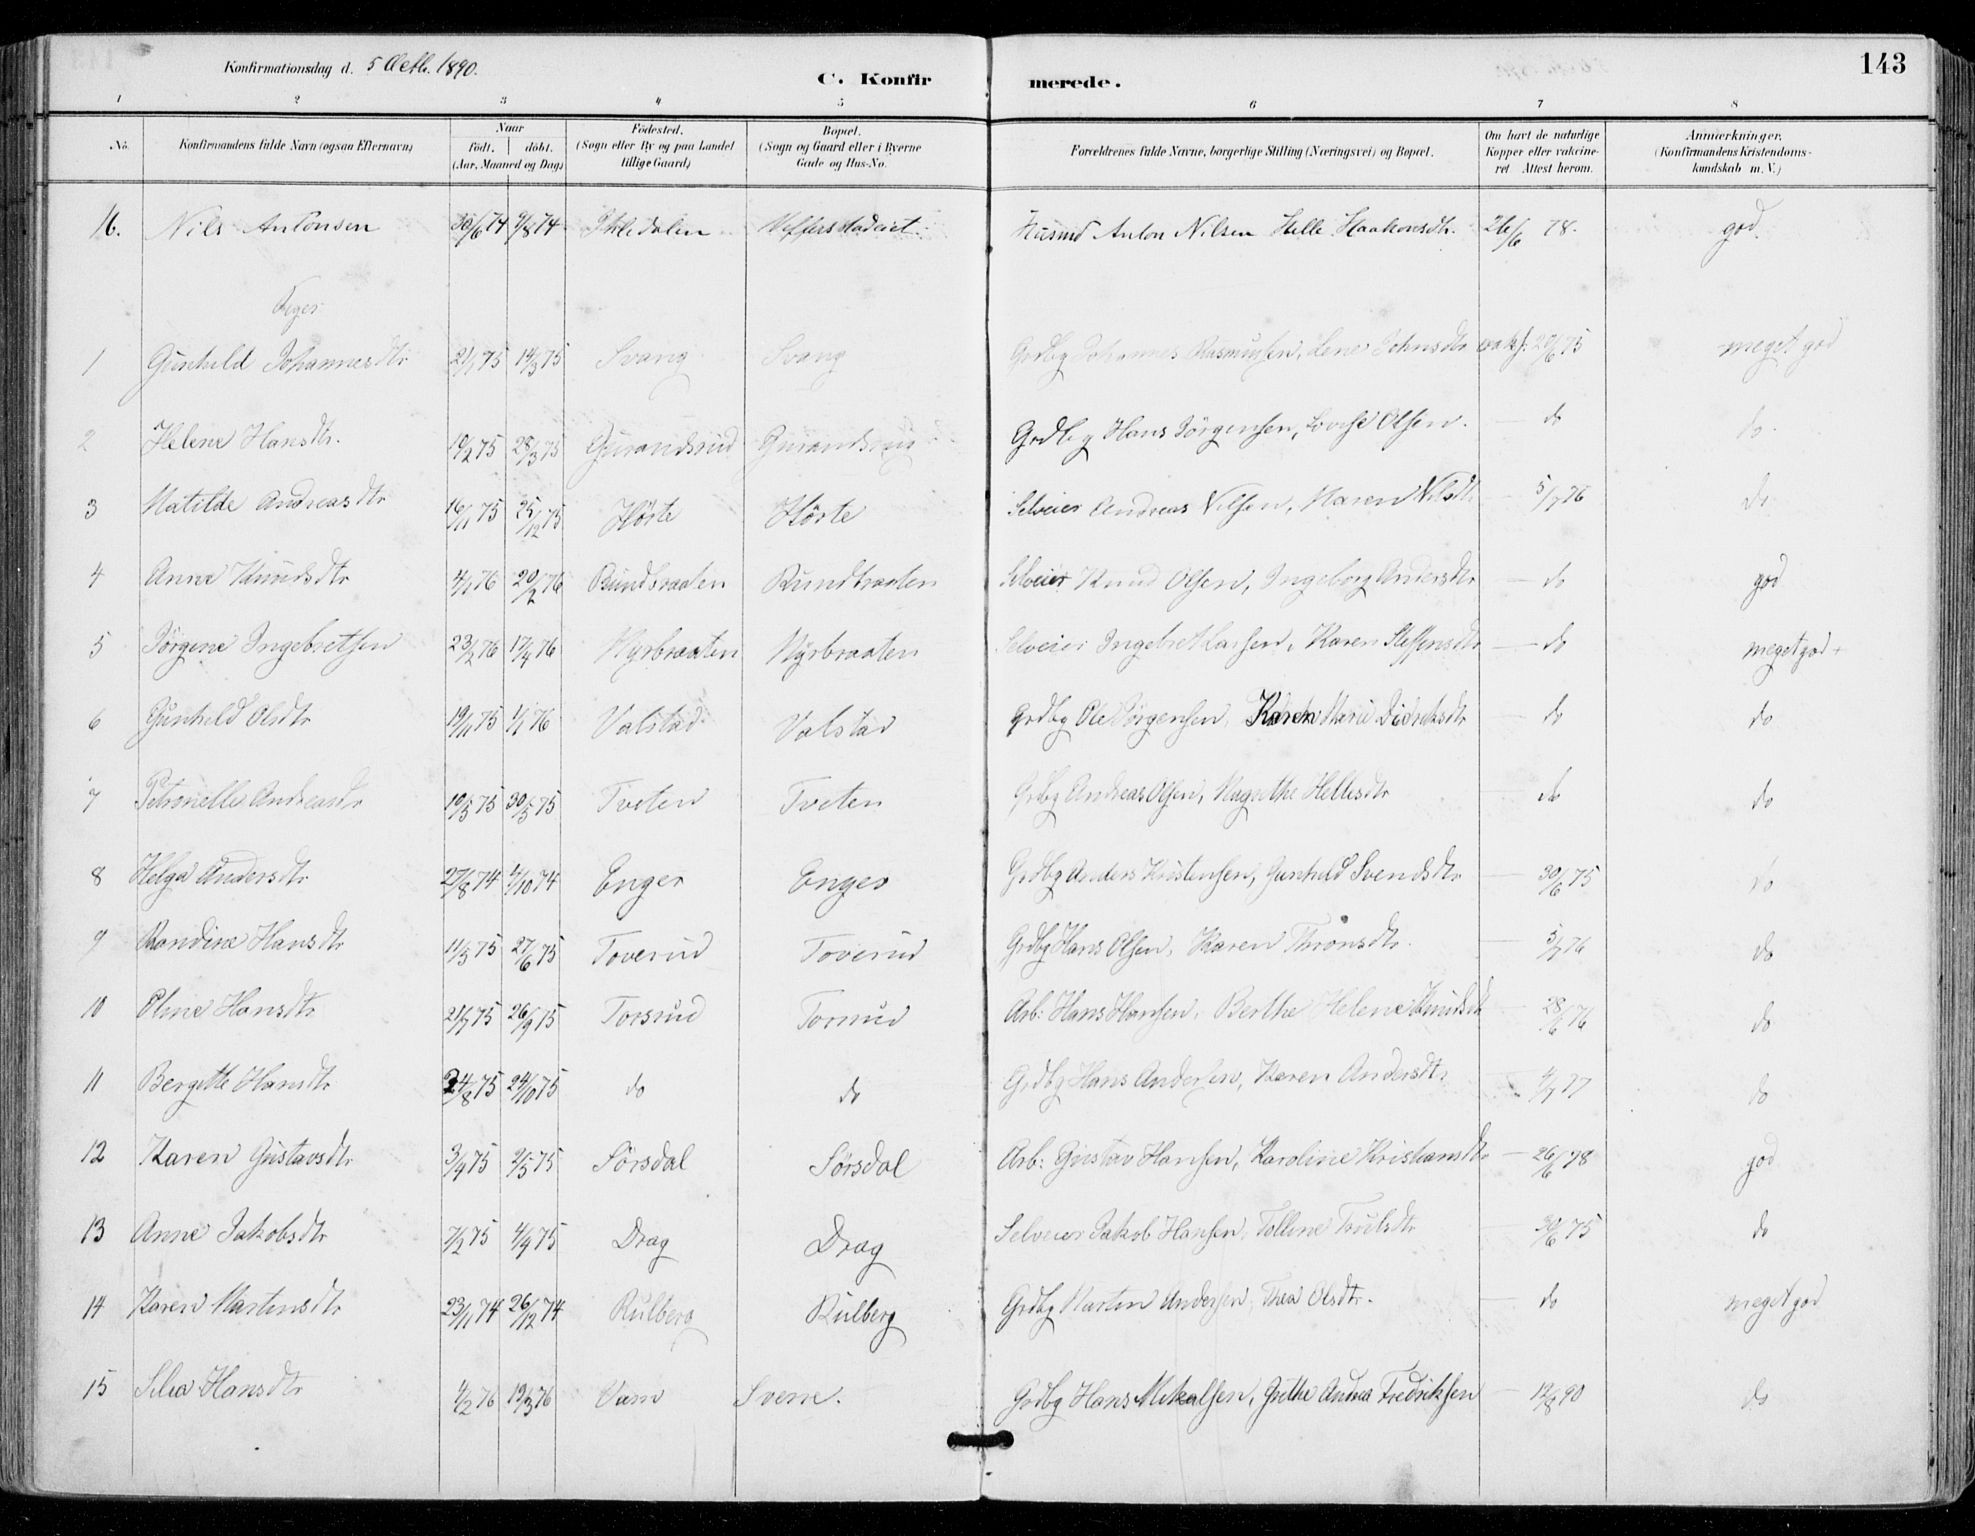 143
Konfirmationsdag d. 5 Octb. 1890.
C. Konfirmerede.
1 2 3 4 5 6 7 8
No. Konfirmandens fulde Navn (ogsaa Efternavn) Naar født. døbt. (Aar, Maaned og Dag) Fødested. (Sogn eller By og paa Landet tillige Gaard) Bopæl. (Sogn og Gaard eller i Byerne Gade og Hus-No. Forældrenes fulde Navne, borgerlige Stilling (Næringsvei) og Bopæl. Om havt de naturlige Kopper eller vakcineret Attest herom. Anmærkninger. (Konfirmandens Kristendomskundskab m. V.)
16. Nils Antonsen 30/6 74 9/8 74 Husmd Anton Nilsen Helle Haakonsdtr. 26/6 78. god.
Piger
1 Gunhild Johannesdtr 21/1 75 14/3 75 Svang Svang Grdbg Johannes Rasmussen, Lene Johnsdtr vaks: 29/6 75 meget god
2 Helene Hansdtr. 10/2 75 28/3 75 Gurandsrud Gurandsrud Grdbg Hans Jörgensen, Lovise Olsen. — do do.
3 Matilde Andreasdtr 16/11 75 25/12 75 Hörte Hörte Selveier Andreas Nilsen, Maren Nilsdtr — 5/7 76 do
4 Anne Knudsdtr 4/1 76 20/2 76 Rundbraaten Rundbraaten Selveier Knud Olsen, Ingeborg Andersdtr — do god
5 Jörgine Ingebretsen 23/2 76 17/4 76 Myrbraaten Myrbraaten Selveier Ingebret Larsen, Karen Steffensdtr — do meget god +
6 Gunhild Olsdtr 19/11 75 1/1 76 Valstad Valstad Grdbg Ole Jörgensen, Karen Marie Didriksdtr — do do
7 Petronelle Andreasdtr 10/3 75 30/5 75 Tveten Tveten Grdbg Andreas Olsen, Magrethe Hellesdtr — do do
8 Helga Andersdtr 27/8 74 4/10 74 Enger Enger Grdbg Anders Kristensen, Gunhild Svendsdtr — 30/6 75 do
9 Randine Hansdtr 11/5 75 27/6 75 Toverud Toverud Grdbg Hans Olsen, Karen Thronsdtr. 5/7 76 do
10 Oline Hansdtr 21/7 75 26/9 75 Torsrud Torsrud Arb: Hans Hansen, Berthe Helene Knudsdtr — 28/6 76 do
11 Bergitte Hansdtr 24/8 75 24/10 75 do do Grdbg Hans Andersen, Karen Andersdtr — 4/7 77 do
12 Karen Gustavsdtr 3/4 75 9/5 75 Sörsdal Sörsdal Arb: Gustav Hansen, Karoline Kristiansdtr — 26/6 78 god
13 Anne Jakobsdtr 7/2 75 4/4 75 Drag Drag Selveier Jakob Hansen, Tolline Trulsdtr — 30/6 75 do
14 Karen Martinsdtr 23/11 74 26/12 74 Rulberg Rulberg Grdbg Martin Andersen, Thea Olsdtr. — do meget god
15 Hansdtr 1/2 76 19/3 76 Vam Sverre. Grdbg Hans Mikalsen, Grethe Andrea Fredriksen — 12/8 90 do